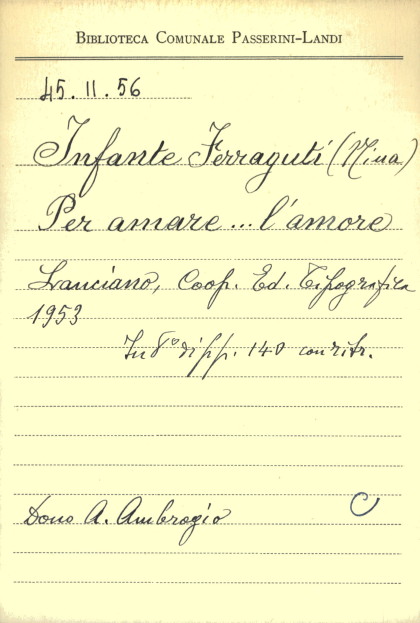 BIBLIOTECA COMUNALE PASSERINI-LANDI
45.II.56
Infante Ferraguti (Nina)
Per amare... l'amore
Lanciano, Coop. Ed. Tipografica
1953
In 8° di pp. 140 con ritr.
Dono A. Ambrogio
C